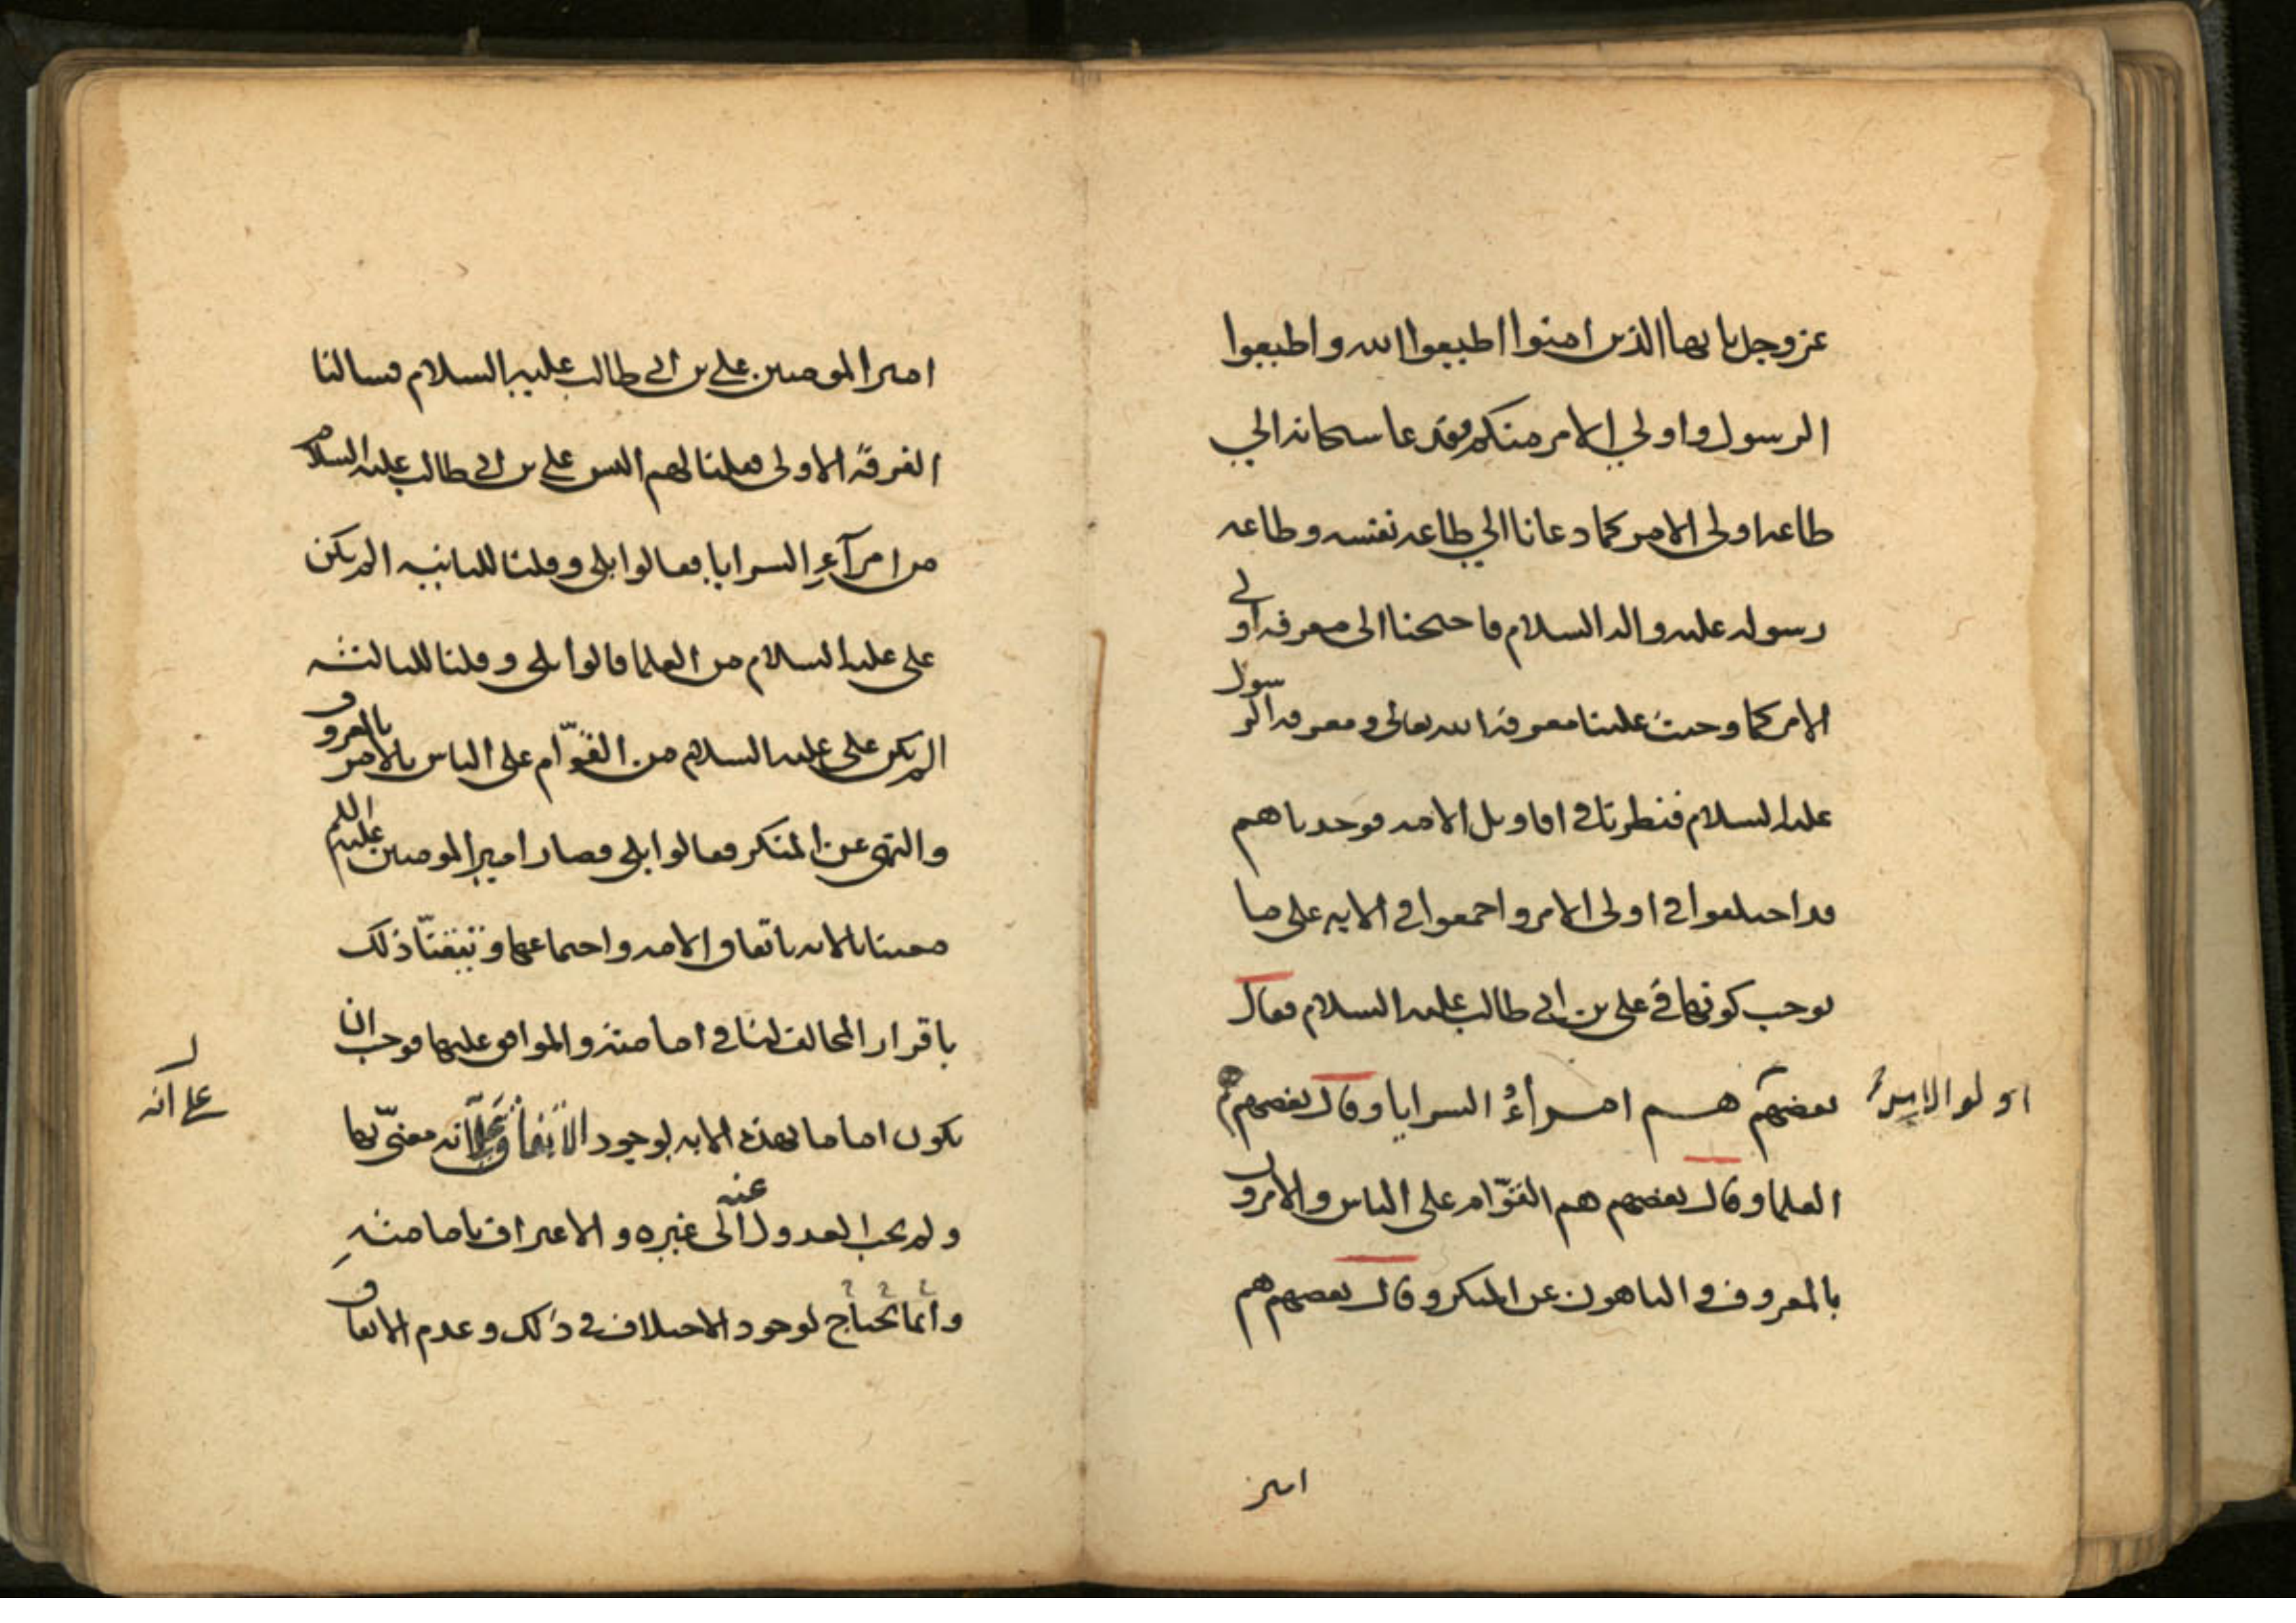 عز وجل يا يها الذين امنوا اطيعوا الله واطيعوا
الرسول واولي الامر منكم فقد عا سبحانه الي
طاعه اولى الامر كما دعانا الي طاعه نفسه وطاعه
رسوله عليه واله السلام فاحتجنا الى معرفه اولي
الامر كما وجبت علينا معرفة الله تعالى ومعرفه الرسول
عليه السلام فنظرنا في اقاويل الامه فوجدناهم
قد اختلفوا في اولى الامر واجمعوا في الايه على ما
يوجب كونها في على بن ابي طالب عليه السلام فقال
بعضهم هم امرآءُ السرايا وقال بعضهم هم
اولو الامر
العلما وقال بعضهم هم القوّام على الناس والامرون
بالمعروف والناهون عن المنكر وقال بعضهم هم
امير
امير المومنين علي بن ابي طالب عليه السلام فسالنا
الفرقة الاولى فقلنا لهم اليس علي بن ابي طالب عليه السلام
من امرآءِ السرايا فقالوا بلى وقلنا للثانيه الم يكن
على عليه السلام من العلما قالوا بلى وقلنا للثالثه
الم يكن على عليه السلام من القوّام على الناس بالامر بالمعروف
والنهي عن المنكر فقالوا بلى فصار امير المومنين عليه السلم
معينا بالايه باتفاق الامه واجماعها وتيقنّا ذلك
باقرار المخالف لنا في امامته والموافق عليها فوجب ان
يكون اماما بهذه الايه لوجود الاتفاق على انه معنىّ بها
على انه
ولم يجب العدول عنه الى غيره والاعتراف بامامته
وانما تحتاج لوجود الاختلاف في ذلك وعدم الاتفاق